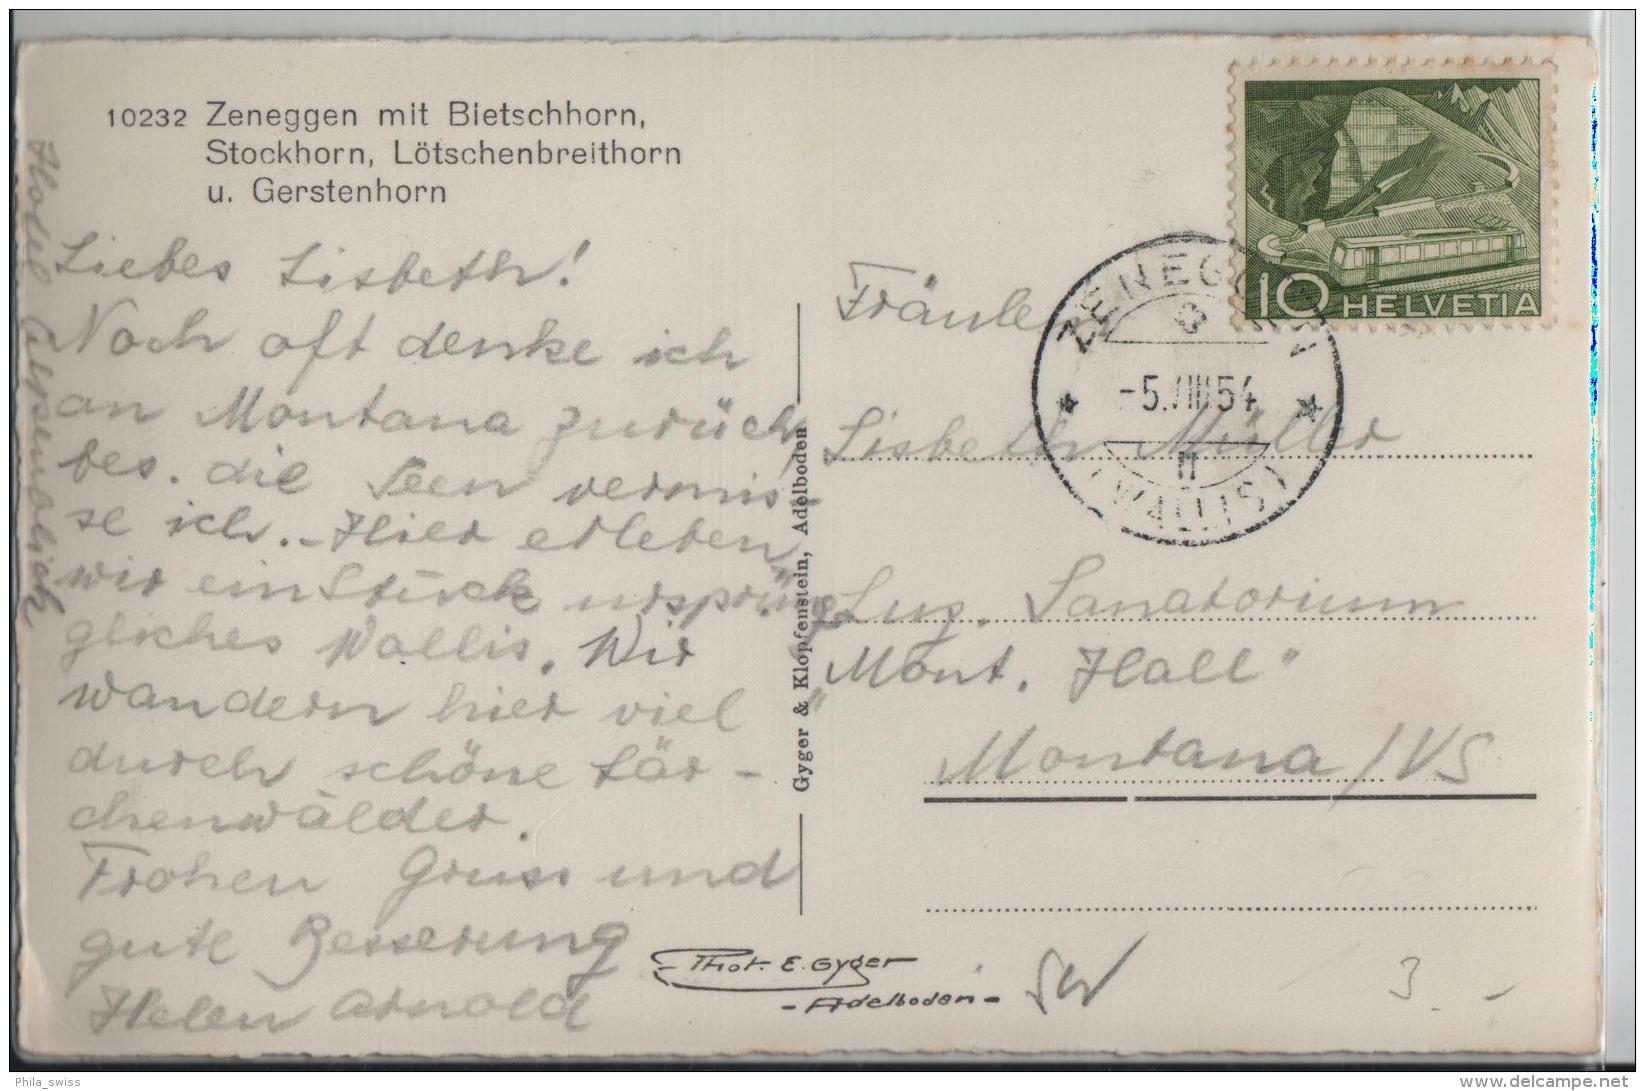 10232 Zeneggen mit Bietschhorn,
Stockhorn, Lötschenbreithorn
u. Gerstenhorn
Hotel Alpenblick
Liebes Lisbeth!
Noch oft denke ich
an Montana zurück,
bes. die Seen vermis-
se ich. - Hier erleben
wir ein Stück ursprüng-
gliches Wallis. Wir
wandern hier viel
durch schöne Lär-
chenwälder.
Frohen Gruss und
gute Besserung
Helen Arnold
Gyger & Klopfenstein, Adelboden
10 HELVETIA
ZENEGGEN
-5.VIII 54
(WALLIS)
Fräulein
Lisbeth Müller
Luz. Sanatorium
"Mont. Hall"
Montana / VS
Phot. E. Gyger
- Adelboden -
SW
3.-
Phila_swiss
www.delcampe.net